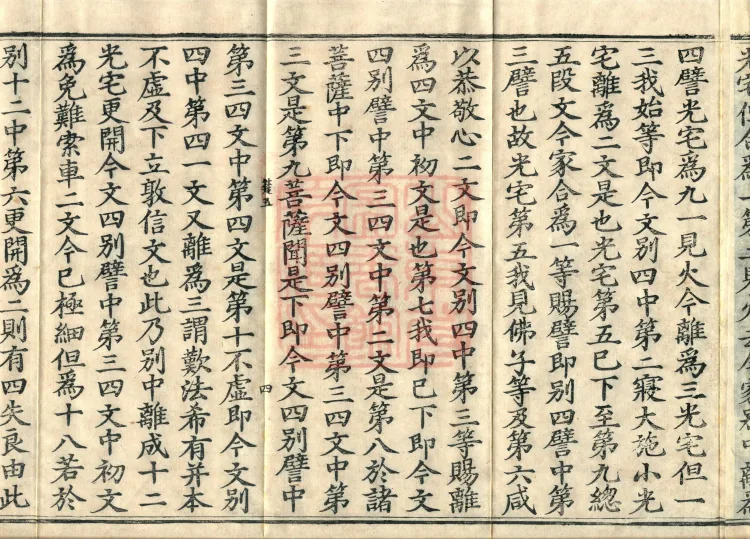 四譬光宅為九一見火今離為三光宅但一
三我始等即今文別四中第二寢大施小光
宅離為二文是也光宅第五已下至第九總
五段文今家合為一等賜譬即別四譬中第
三譬也故光宅第五我見佛子等及第六咸
以恭敬心二文即今文別四中第三等賜離
為四文中初文是也第七我即已下即今文
四別譬中第三四文中第二文是第八於諸
菩薩中下即今文四別譬中第三四文中第
三文是第九菩薩聞是下即今文四別譬中
第三四文中第四文是第十不虛即今文別
四中第四一文又離為三謂歎法希有并本
不虛及下立敦信文也此乃別中離成十二
光宅更開今文四別譬中第三四文中初文
為免難索車二文今已極細但為十八若於
別十二中第六更開為二則有四失良由此